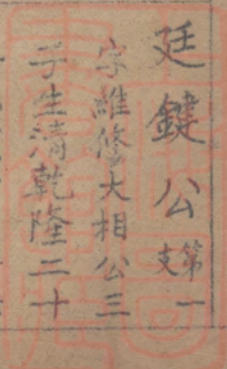 廷鍵公第一支
字維修大相公三
子生清乾隆二十